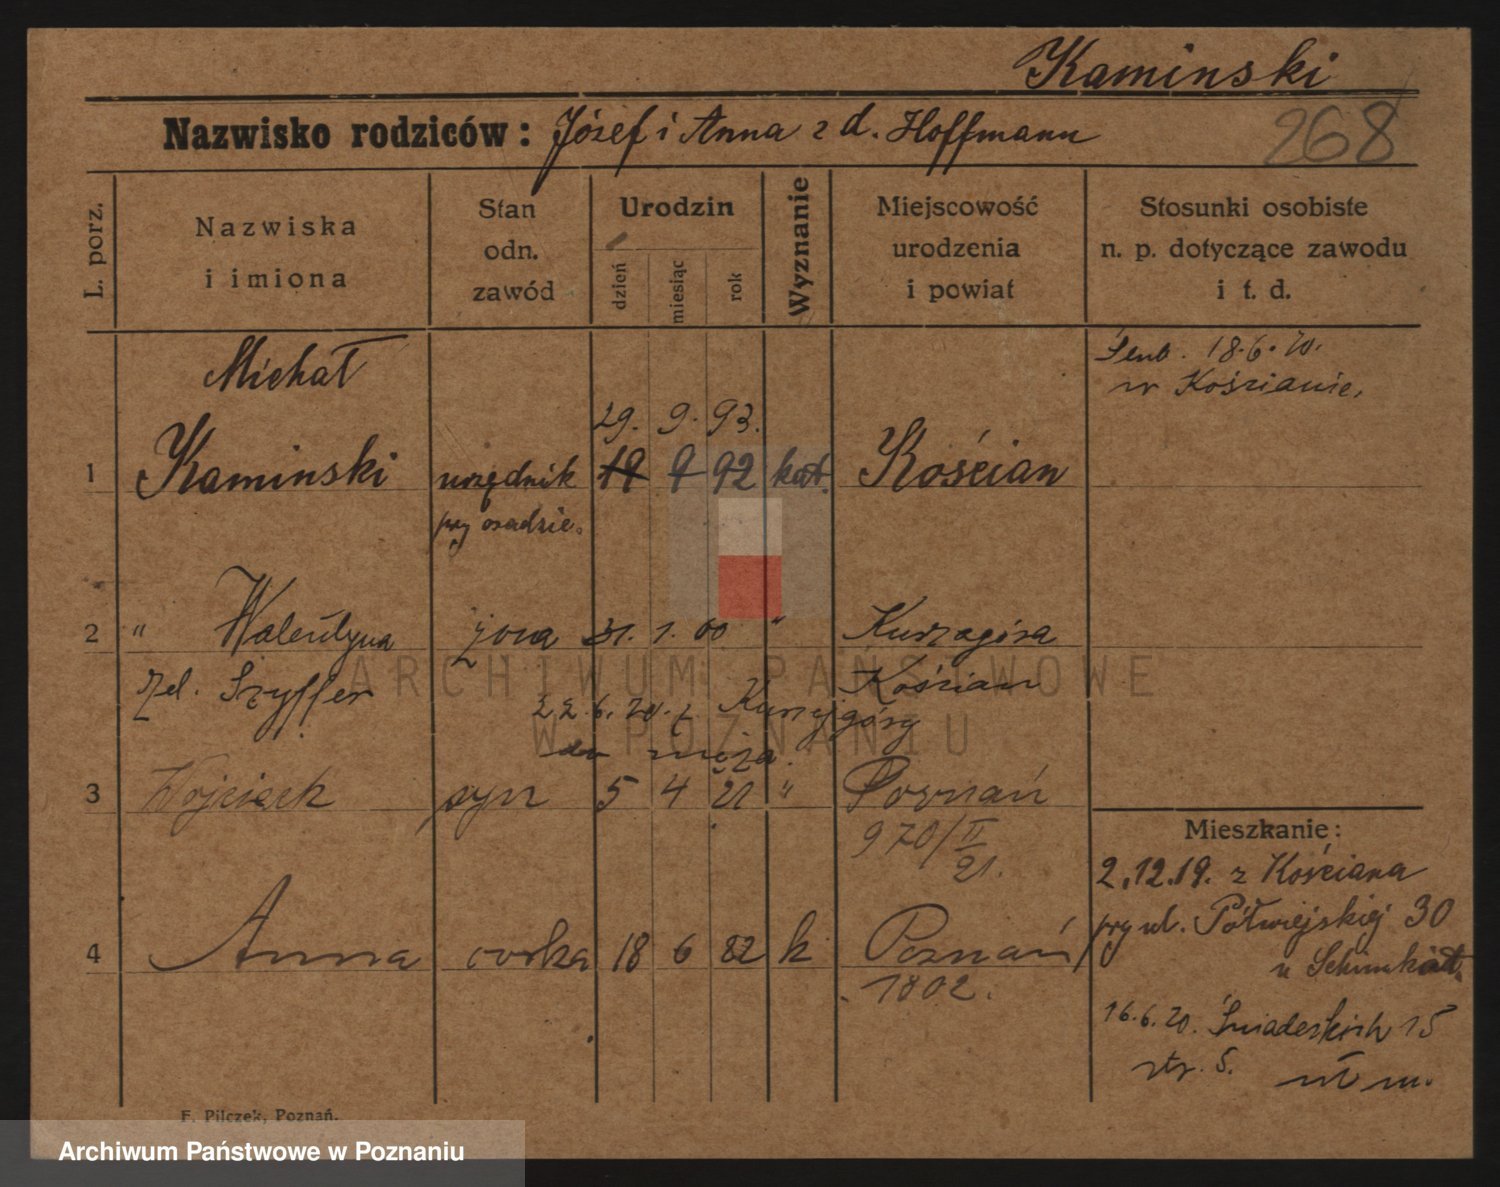 Kaminski
Nazwisko rodziców: Józef i Anna z d. Hoffmann
268
L. porz.
Nazwiska
i imiona
Stan
odn.
zawód
Urodzin
dzień
miesiąc
rok
Wyznanie
Miejscowość
urodzenia
i powiat
Stosunki osobiste
n. p. dotyczące zawodu
i t. d.
Michał
Ślub. 18.6.20.
w Kościanie.
29. 9. 93.
1 Kaminski urzędnik 19 9 92 kat. Kościan
przy osadzie.
2 " Walentyna żona 31. 1. 00 " Kurzagóra
zd. Szyffer Kościan
22.6.20. z Kurzejgóry
do męża.
3 Wojciech syn 5 4 21 " Poznań
970/II
21.
Mieszkanie:
2.12.19. z Kościana
przy ul. Półwiejskiej 30
u
4 Anna córka 18 6 22 k Poznań
1802.
16.6.20. Śniadeckich 15
str. S. wł m.
F. Pilczek, Poznań.
ARCHIWUM PAŃSTWOWE
W POZNANIU
Archiwum Państwowe w Poznaniu